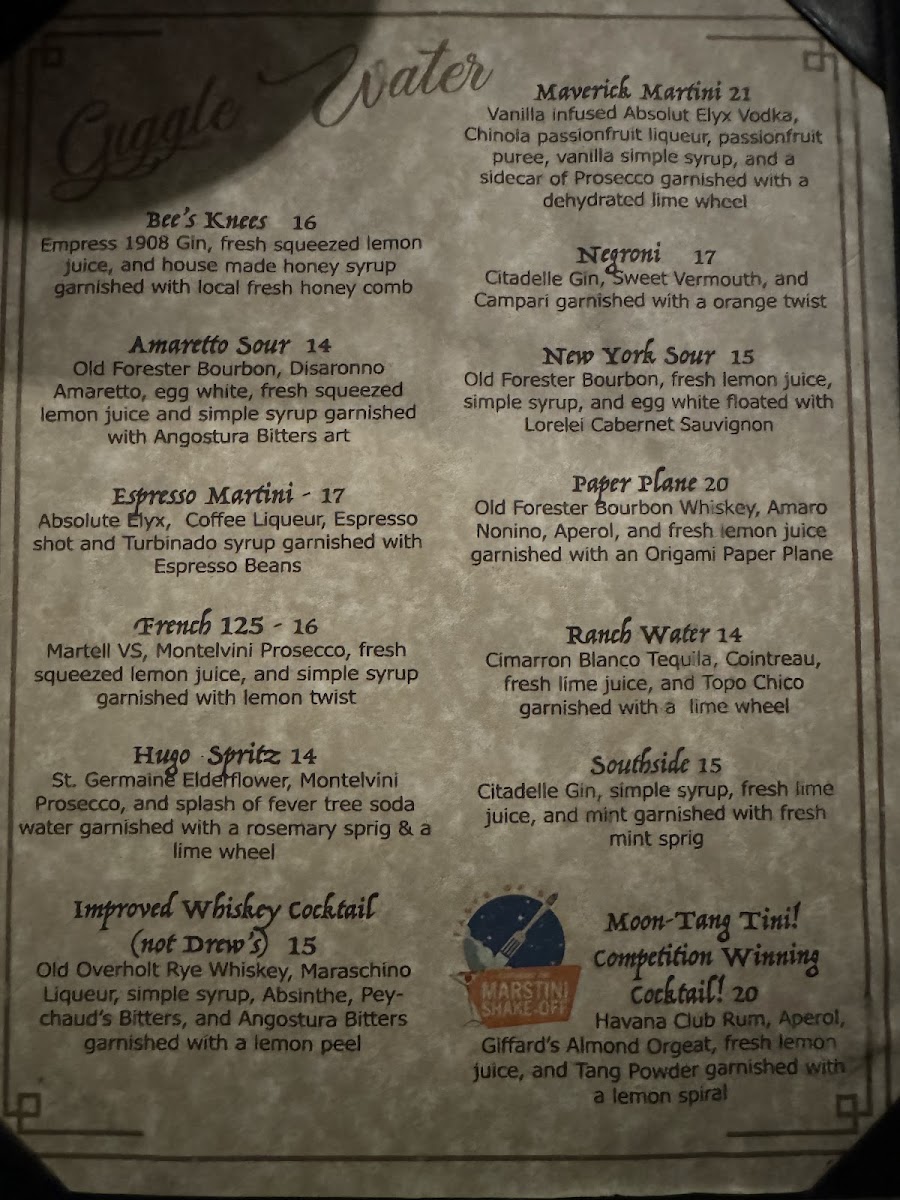 Giggle Water
Bee's Knees 16
Empress 1908 Gin, fresh squeezed lemon
juice, and house made honey syrup
garnished with local fresh honey comb
Amaretto Sour 14
Old Forester Bourbon, Disaronno
Amaretto, egg white, fresh squeezed
lemon juice and simple syrup garnished
with Angostura Bitters art
Espresso Martini - 17
Absolute Elyx, Coffee Liqueur, Espresso
shot and Turbinado syrup garnished with
Espresso Beans
French 125 - 16
Martell VS, Montelvini Prosecco, fresh
squeezed lemon juice, and simple syrup
garnished with lemon twist
Hugo Spritz 14
St. Germaine Elderflower, Montelvini
Prosecco, and splash of fever tree soda
water garnished with a rosemary sprig & a
lime wheel
Improved Whiskey Cocktail
(not Drew's) 15
Old Overholt Rye Whiskey, Maraschino
Liqueur, simple syrup, Absinthe, Pey-
chaud's Bitters, and Angostura Bitters
garnished with a lemon peel
Maverick Martini 21
Vanilla infused Absolut Elyx Vodka,
Chinola passionfruit liqueur, passionfruit
puree, vanilla simple syrup, and a
sidecar of Prosecco garnished with a
dehydrated lime wheel
Negroni 17
Citadelle Gin, Sweet Vermouth, and
Campari garnished with a orange twist
New York Sour 15
Old Forester Bourbon, fresh lemon juice,
simple syrup, and egg white floated with
Lorelei Cabernet Sauvignon
Paper Plane 20
Old Forester Bourbon Whiskey, Amaro
Nonino, Aperol, and fresh lemon juice
garnished with an Origami Paper Plane
Ranch Water 14
Cimarron Blanco Tequila, Cointreau,
fresh lime juice, and Topo Chico
garnished with a lime wheel
Southside 15
Citadelle Gin, simple syrup, fresh lime
juice, and mint garnished with fresh
mint sprig
MARSTINI
SHAKE-OFF
Moon-Tang Tini!
Competition Winning
Cocktail! 20
Havana Club Rum, Aperol,
Giffard's Almond Orgeat, fresh lemon
juice, and Tang Powder garnished with
a lemon spiral